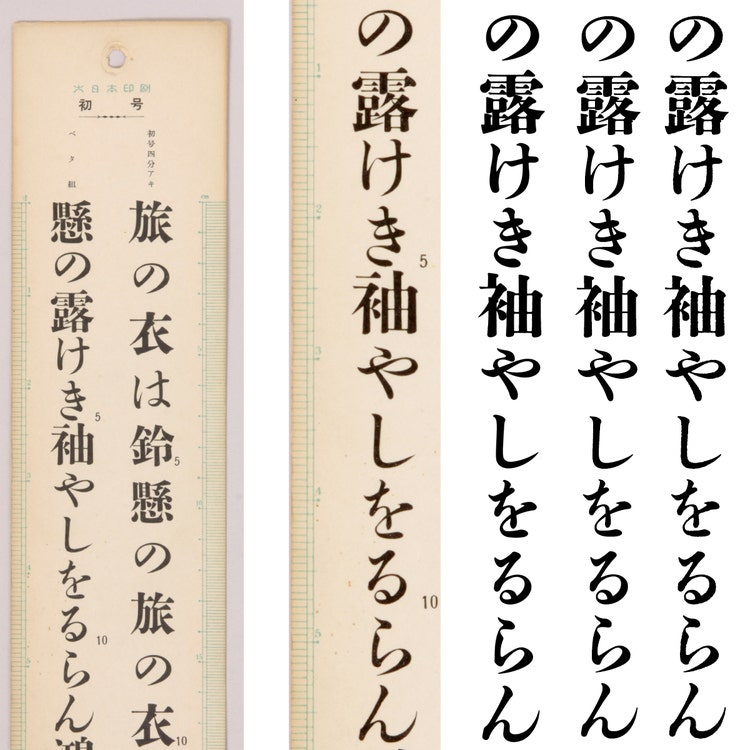 大日本印刷
初号
初号四分アキ
ベタ組
旅の衣は鈴懸の旅の衣
5
10
懸の露けき袖やしをるらん
5
10
の露けき袖やしをるらん
5
10
の露けき袖やしをるらん
の露けき袖やしをるらん
の露けき袖やしをるらん